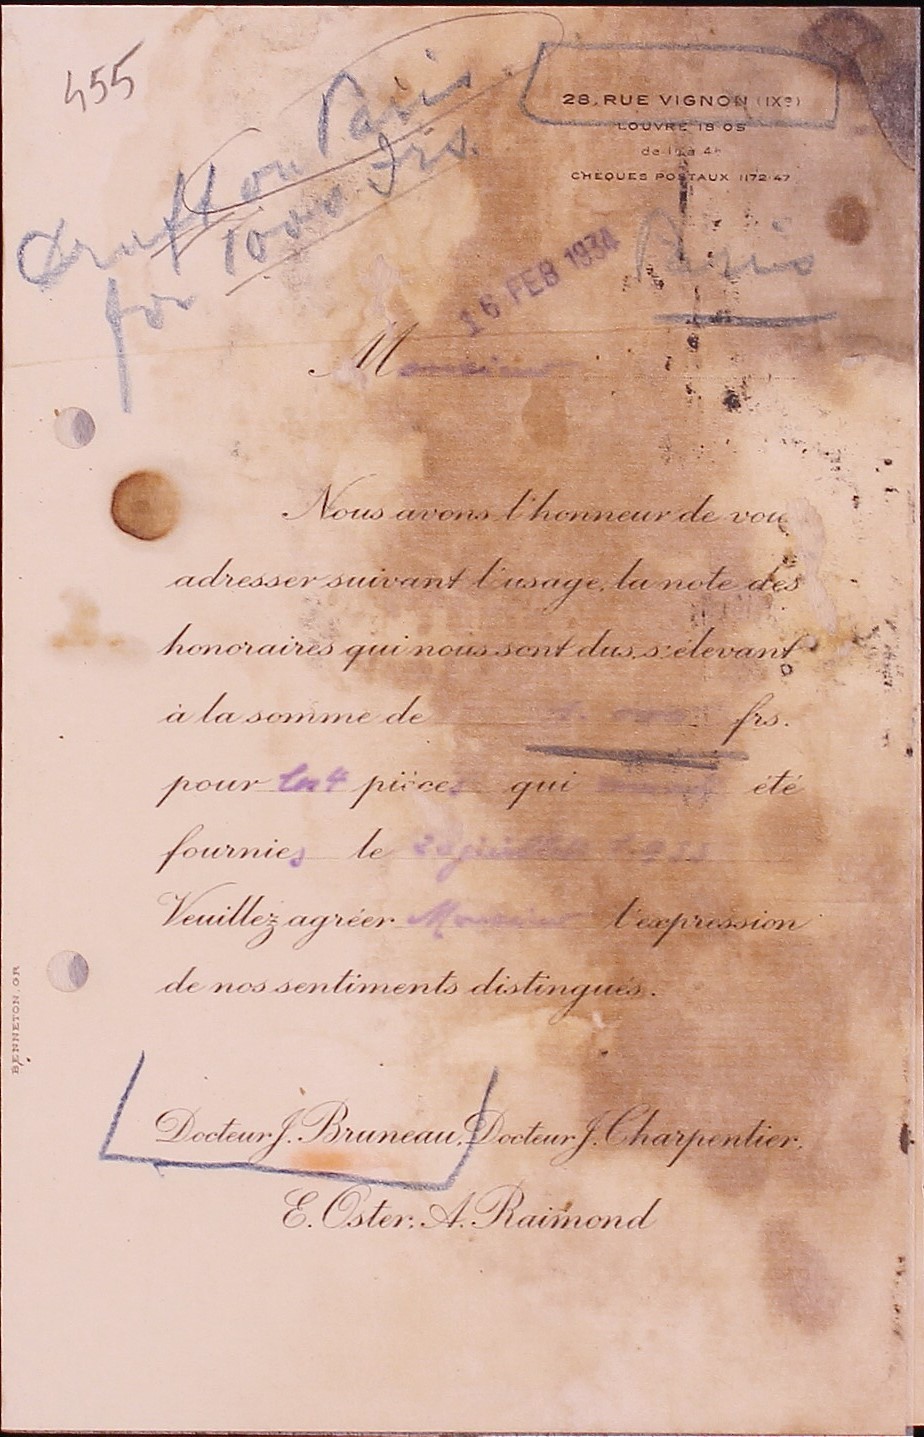 455
Draft on Paris
for 1000 Frs.
28, RUE VIGNON (IXᵉ)
LOUVRE 19 05
CHEQUES POSTAUX 1172 47
Paris
16 FEB 1934
Monsieur
Nous avons l'honneur de vou
adresser suivant l'usage, la note des
honoraires qui nous sont dus, s'élevant
à la somme de 1.000 frs.
pour les 4 pièces qui été
fournies le juillet
Veuillez agréer Monsieur l'expression
de nos sentiments distingués.
Docteur J. Bruneau, Docteur J. Charpentier.
E. Oster. A. Raimond
BENNETON. OR